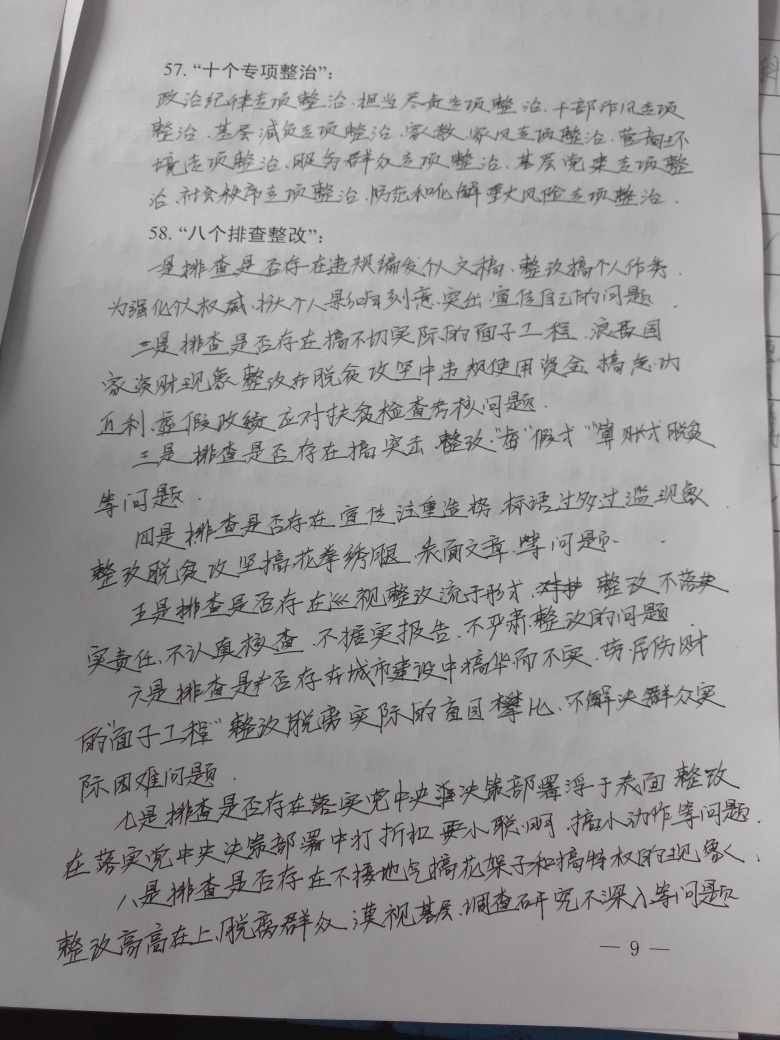 57. “十个专项整治”：
政治纪律专项整治、担当尽责专项整治、干部作风专项
整治、基层减负专项整治、家教、家风专项整治、营商环
境专项整治、服务群众专项整治、基层党建专项整
治、社会秩序专项整治、防范和化解重大风险专项整治.
58. “八个排查整改”：
一是排查是否存在违规编发个人文稿、整改搞个人作秀.
为强化个人权威、扩大个人影响刻意、突出、宣传自己的问题.
二是排查是否存在搞不切实际的面子工程、浪费国
家资财现象 整改在脱贫攻坚中违规使用资金 搞急功
近利、虚假政绩 应对扶贫检查考核问题.
三是排查是否存在搞突击 整改“ ”假式“”算账式脱贫
等问题.
四是排查是否存在宣传注重造势、标语过多过滥现象
整改脱贫攻坚搞花拳绣腿、表面文章、等问题.
五是排查是否存在巡视整改流于形式、整改不落实
实责任、不认真核查、不据实报告、不严肃整改的问题
六是排查是否存在城市建设中搞华而不实、劳民伤财
的“面子工程” 整改脱离实际的盲目攀比、不解决群众实
际困难问题.
七是排查是否存在落实党中央决策部署浮于表面 整改
在落实党中央决策部署中打折扣 耍小聪明、搞小动作等问题.
八是排查是否存在不接地气搞花架子和搞特权的现象、
整改高高在上、脱离群众、漠视基层、调查研究不深入等问题
— 9 —